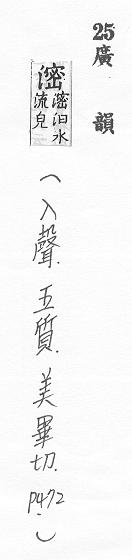 25廣韻
滵 滵汩水
流皃
(入聲.五質.美畢切.P472.)